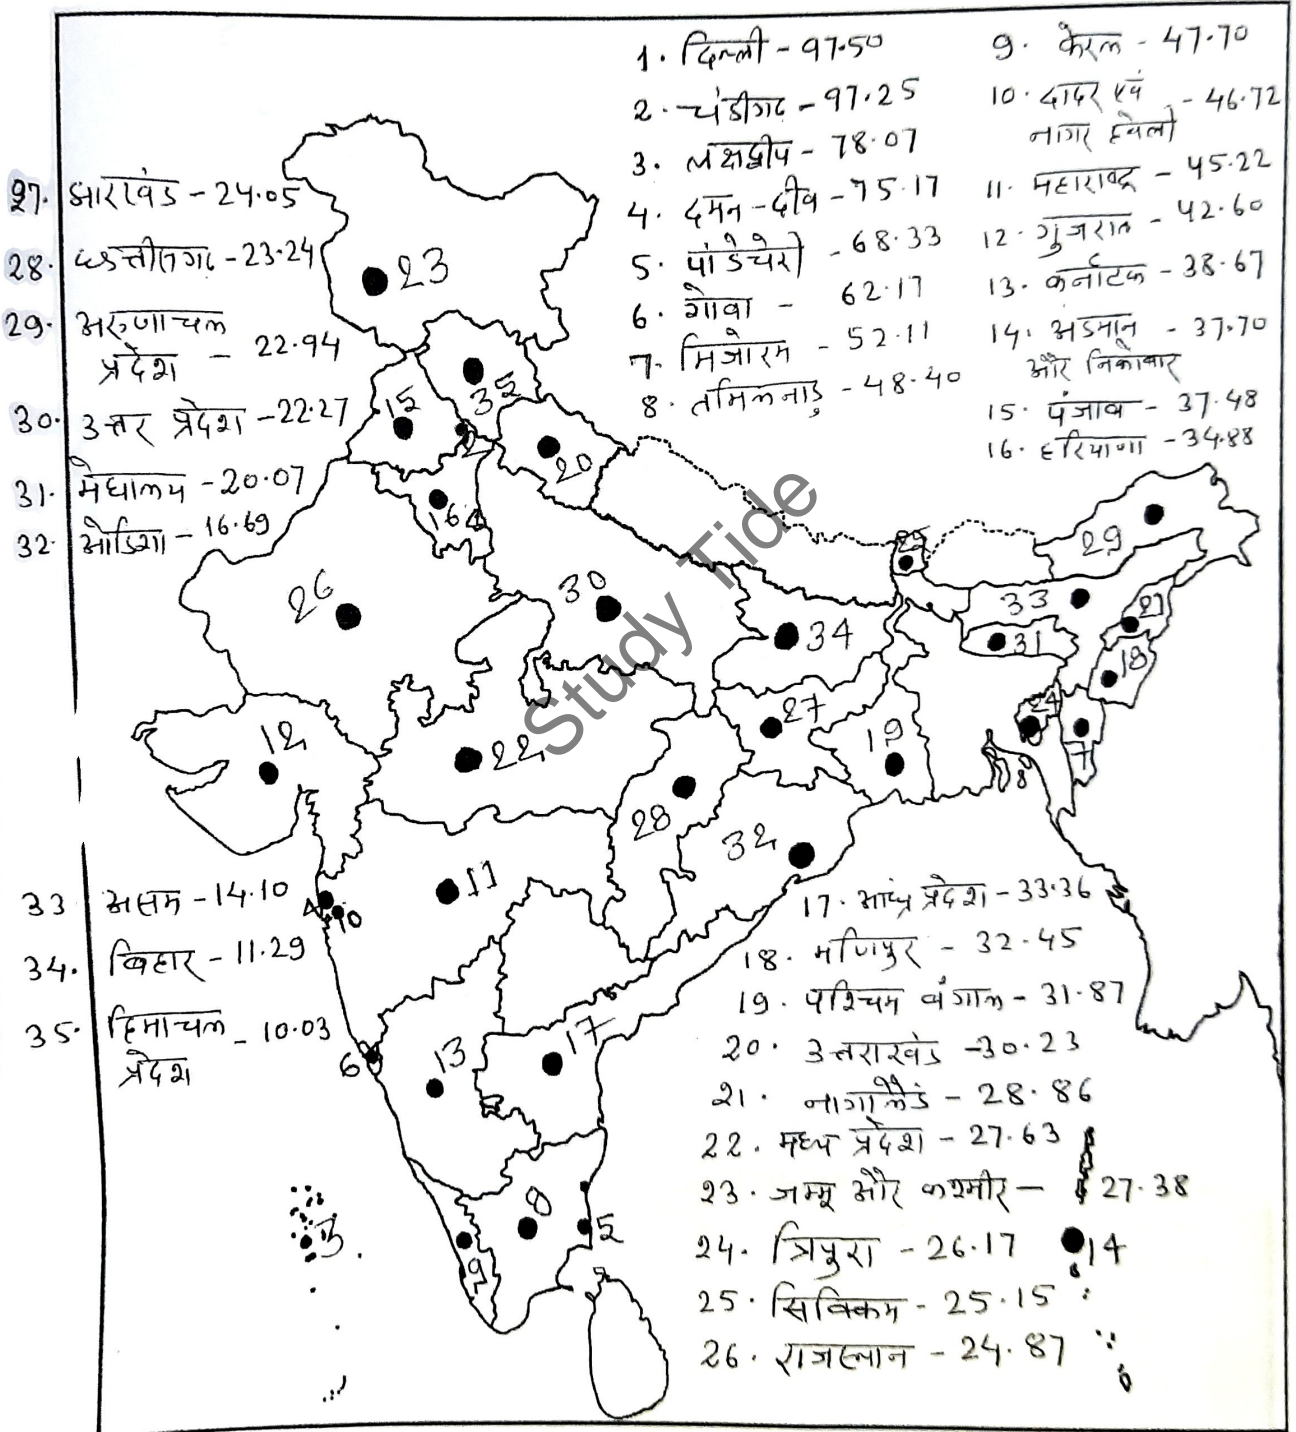 1. दिल्ली - 97.50
2. चंडीगढ - 97.25
3. लक्षद्वीप - 78.07
4. दमन - दीव - 75.17
5. पांडेचेरी - 68.33
6. गोवा - 62.17
7. मिजोरम - 52.11
8. तमिलनाडु - 48.40
9. केरल - 47.70
10. दादर एवं - 46.72
नागर हवेली
11. महाराष्ट्र - 45.22
12. गुजरात - 42.60
13. कर्नाटक - 38.67
14. अंडमान - 37.70
और निकोबार
15. पंजाब - 37.48
16. हरियाणा - 34.88
27. झारखंड - 24.05
28. छत्तीसगढ - 23.24
29. अरुणाचल
प्रदेश - 22.94
30. उत्तर प्रदेश - 22.27
31. मेघालय - 20.07
32. ओडिशा - 16.69
33 असम - 14.10
34. बिहार - 11.29
35. हिमाचल - 10.03
प्रदेश
17. आंध्र प्रदेश - 33.36
18. मणिपुर - 32.45
19. पश्चिम बंगाल - 31.87
20. उत्तराखंड - 30.23
21. नागालैंड - 28.86
22. मध्य प्रदेश - 27.63
23. जम्मू और कश्मीर - 27.38
24. त्रिपुरा - 26.17
25. सिक्किम - 25.15
26. राजस्थान - 24.87
23
35
15
2
20
16
26
30
25
29
33
21
31
18
34
27
24
7
12
22
19
28
32
11
4
10
13
17
6
8
5
3
9
14
Study Tide